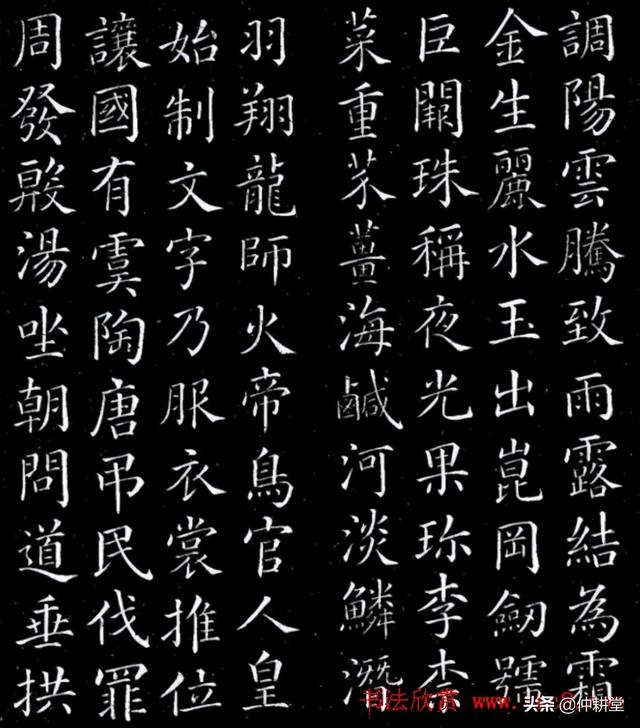 調陽雲騰致雨露結為霜
金生麗水玉出崑岡劒號
巨闕珠稱夜光果珎李柰
菜重芥薑海鹹河淡鱗潛
羽翔龍師火帝鳥官人皇
始制文字乃服衣裳推位
讓國有虞陶唐吊民伐罪
周發殷湯坐朝問道垂拱
书法欣赏
头条 @仲耕堂